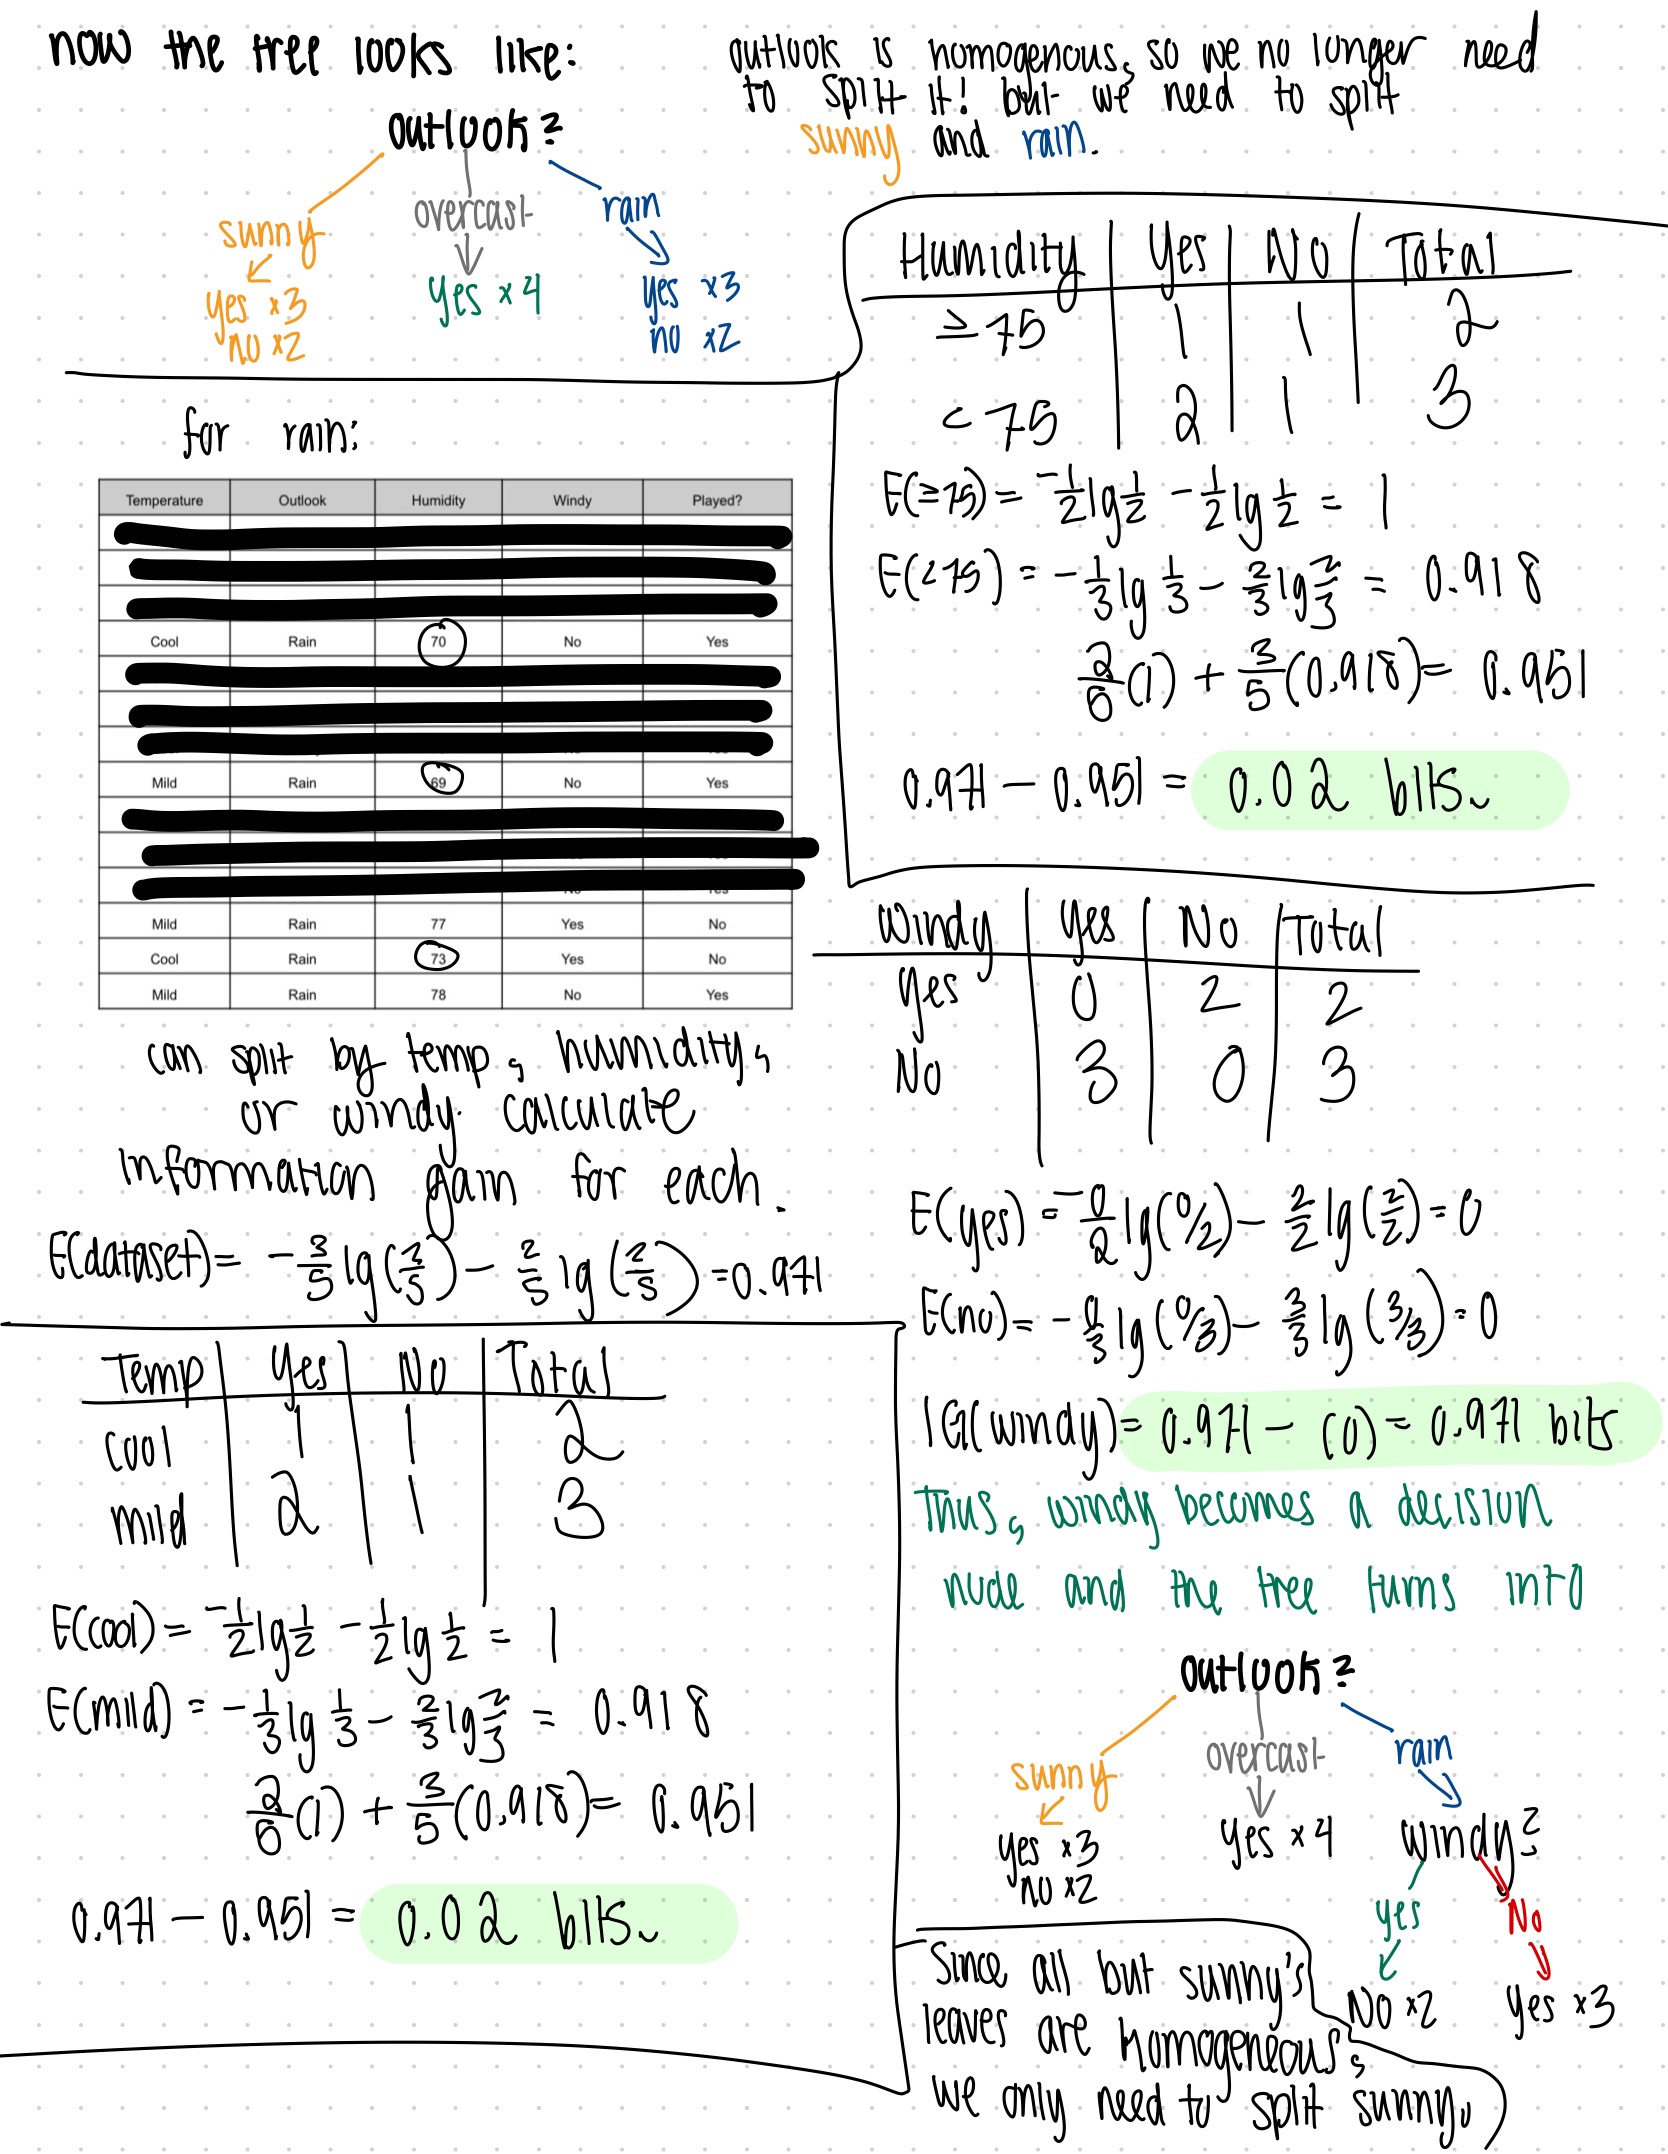 now the tree looks like:
outlook?
sunny
overcast
rain
yes ×3
no ×2
yes ×4
yes ×3
no ×2
outlook is homogenous, so we no longer need
to split it! but we need to split
sunny and rain.
for rain:
Temperature Outlook Humidity Windy Played?
Cool Rain 70 No Yes
Mild Rain 69 No Yes
Mild Rain 77 Yes No
Cool Rain 73 Yes No
Mild Rain 78 No Yes
can split by temp, humidity,
or windy. calculate
information gain for each.
E(dataset) = -3/5 lg(3/5) - 2/5 lg(2/5) = 0.971
Temp Yes No Total
cool 1 1 2
mild 2 1 3
E(cool) = -1/2 lg 1/2 - 1/2 lg 1/2 = 1
E(mild) = -1/3 lg 1/3 - 2/3 lg 2/3 = 0.918
2/5(1) + 3/5(0.918) = 0.951
0.971 - 0.951 = 0.02 bits.
Humidity Yes No Total
≥75 1 1 2
<75 2 1 3
E(≥75) = -1/2 lg 1/2 - 1/2 lg 1/2 = 1
E(<75) = -1/3 lg 1/3 - 2/3 lg 2/3 = 0.918
2/5(1) + 3/5(0.918) = 0.951
0.971 - 0.951 = 0.02 bits.
Windy yes No Total
yes 0 2 2
No 3 0 3
E(yes) = -0/2 lg(0/2) - 2/2 lg(2/2) = 0
E(no) = -0/3 lg(0/3) - 3/3 lg(3/3) = 0
IG(windy) = 0.971 - (0) = 0.971 bits
Thus, windy becomes a decision
node and the tree turns into
outlook?
sunny
overcast
rain
yes ×3
no ×2
yes ×4
windy?
yes
No
No ×2
yes ×3
Since all but sunny's
leaves are homogeneous,
we only need to split sunny.